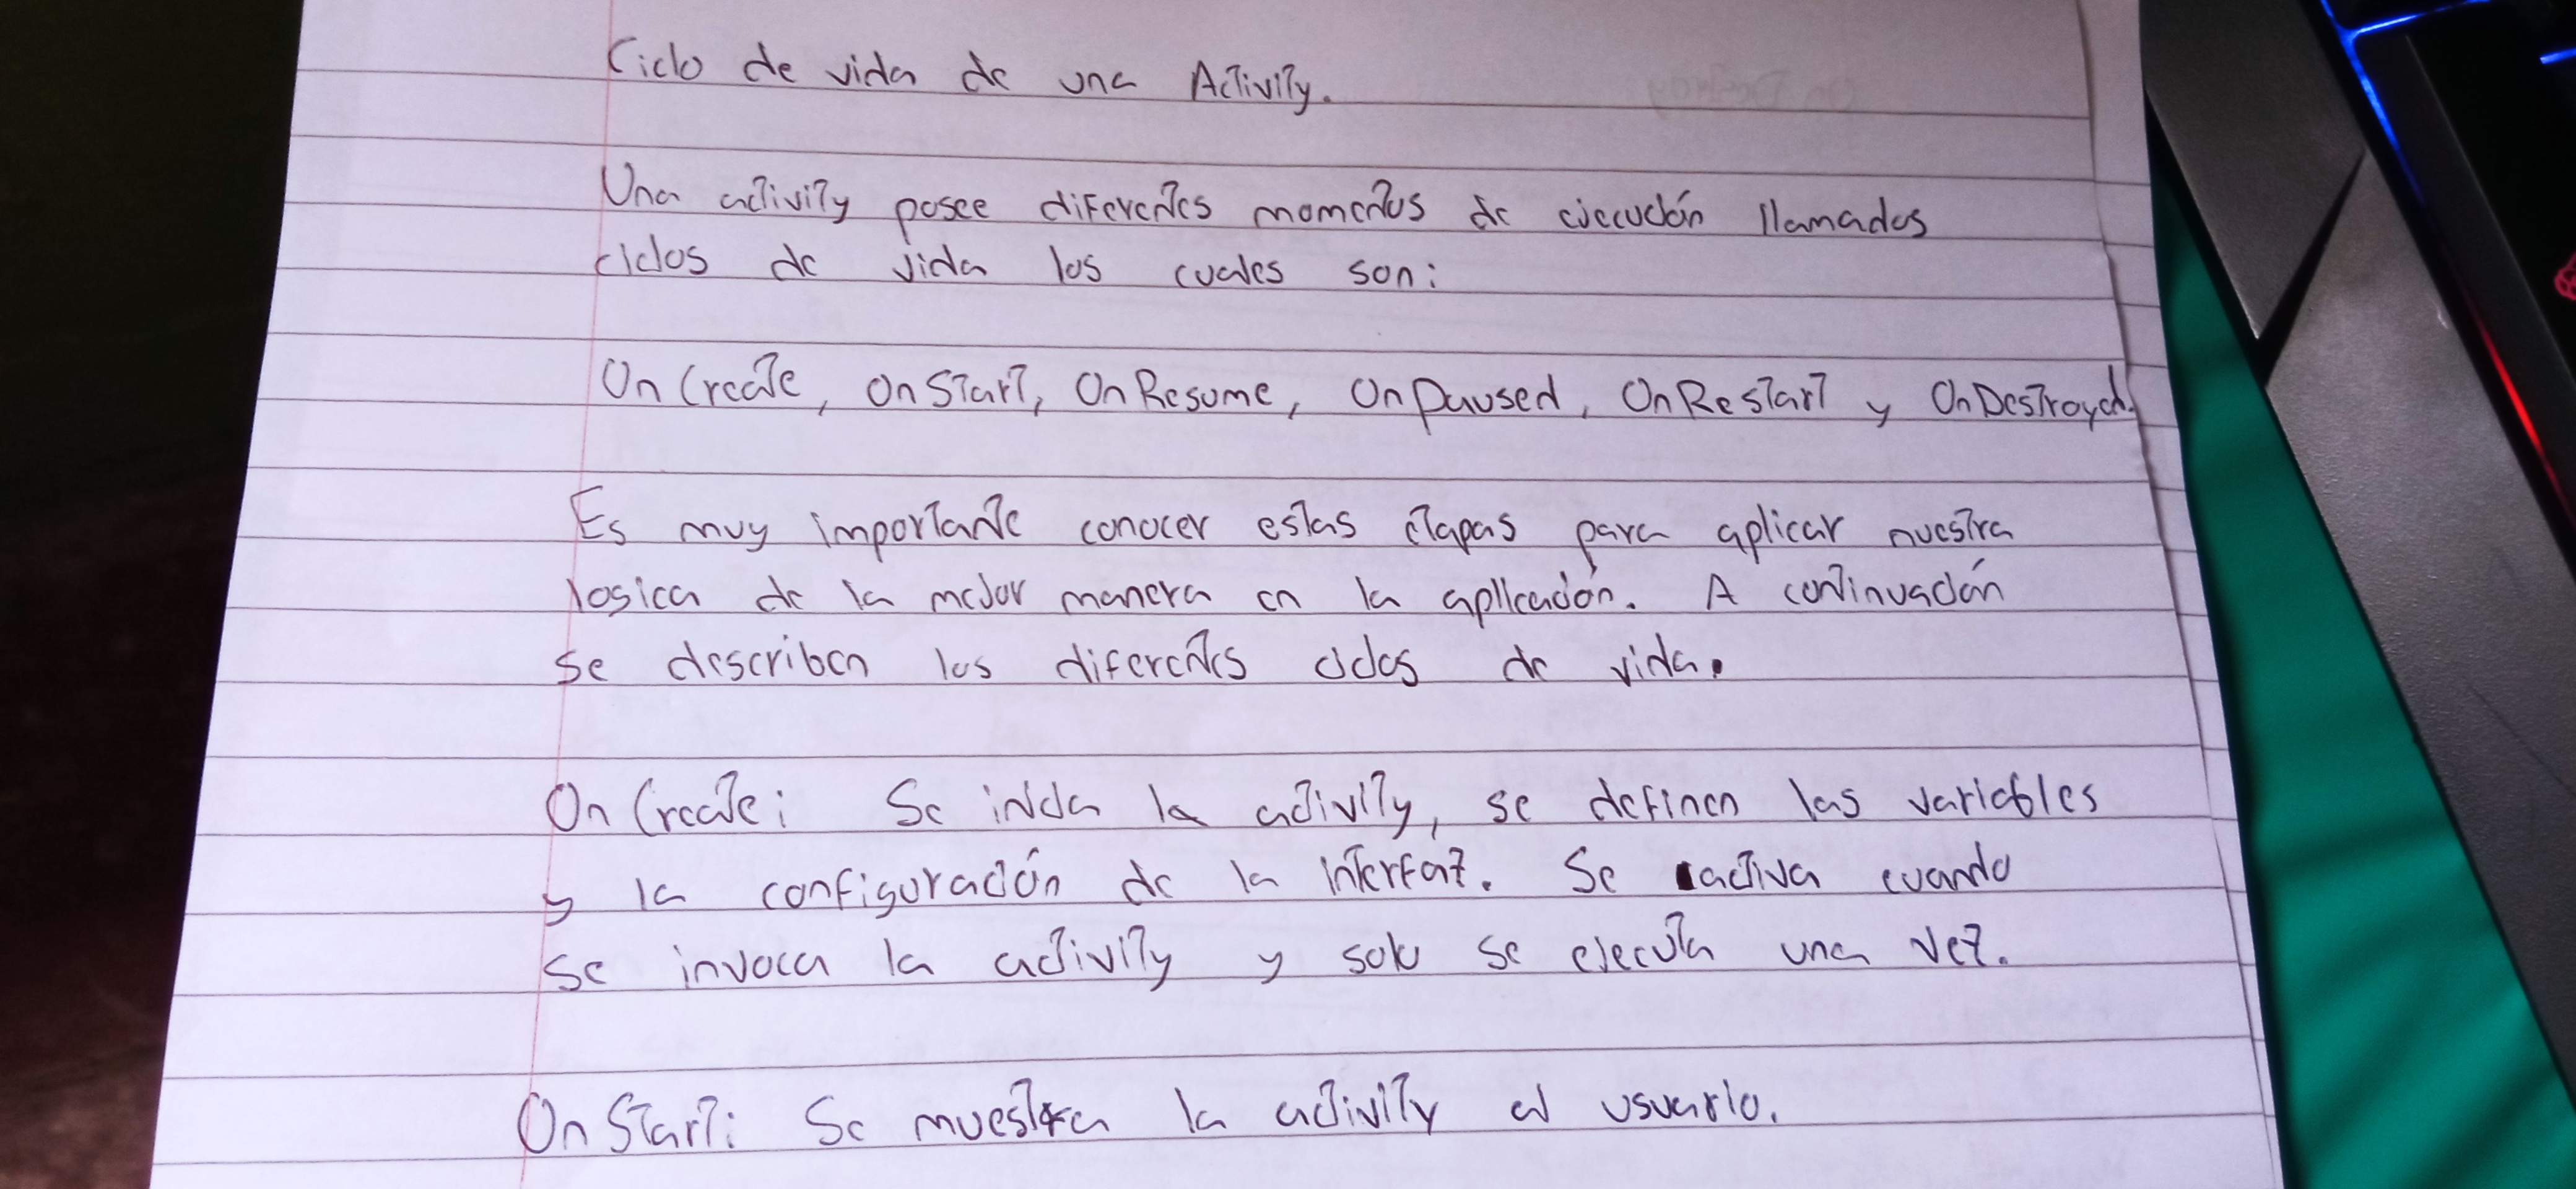 Ciclo de vida de una Activity.
Una activity posee diferentes momentos de ejecución llamados
ciclos de vida los cuales son:
OnCreate, OnStart, OnResume, OnPaused, OnRestart y OnDestroyed.
Es muy importante conocer estas etapas para aplicar nuestra
logica de la mejor manera en la aplicación. A continuación
se describen los diferentes ciclos de vida.
OnCreate: Se inicia la activity, se definen las variables
y la configuración de la interfaz. Se activa cuando
se invoca la activity y solo se ejecuta una vez.
OnStart: Se muestra la activity al usuario.